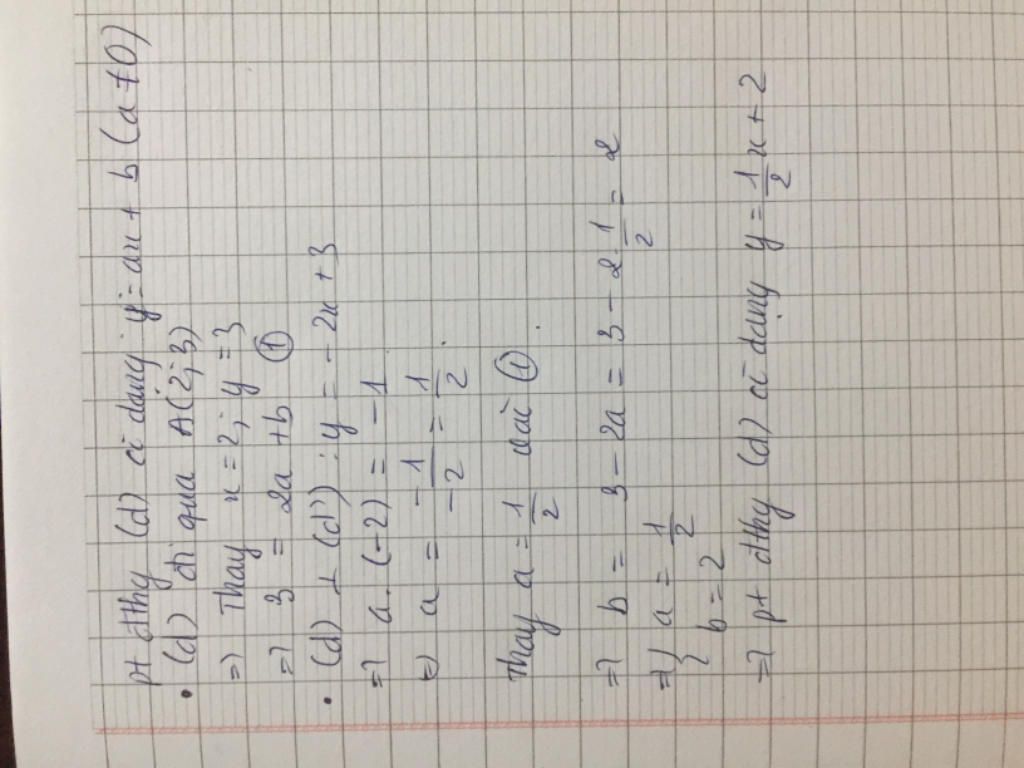 pt đthg (d) có dạng y = ax + b (a ≠ 0)
• (d) đi qua A(2; 3)
=> Thay x = 2; y = 3
=> 3 = 2a + b ①
• (d) ⊥ (d') : y = -2x + 3
=> a.(-2) = -1
<=> a = -1/-2 = 1/2
Thay a = 1/2 vào ①
=> b = 3 - 2a = 3 - 2 1/2 = 2
=> { a = 1/2
b = 2
=> pt đthg (d) có dạng y = 1/2 x + 2